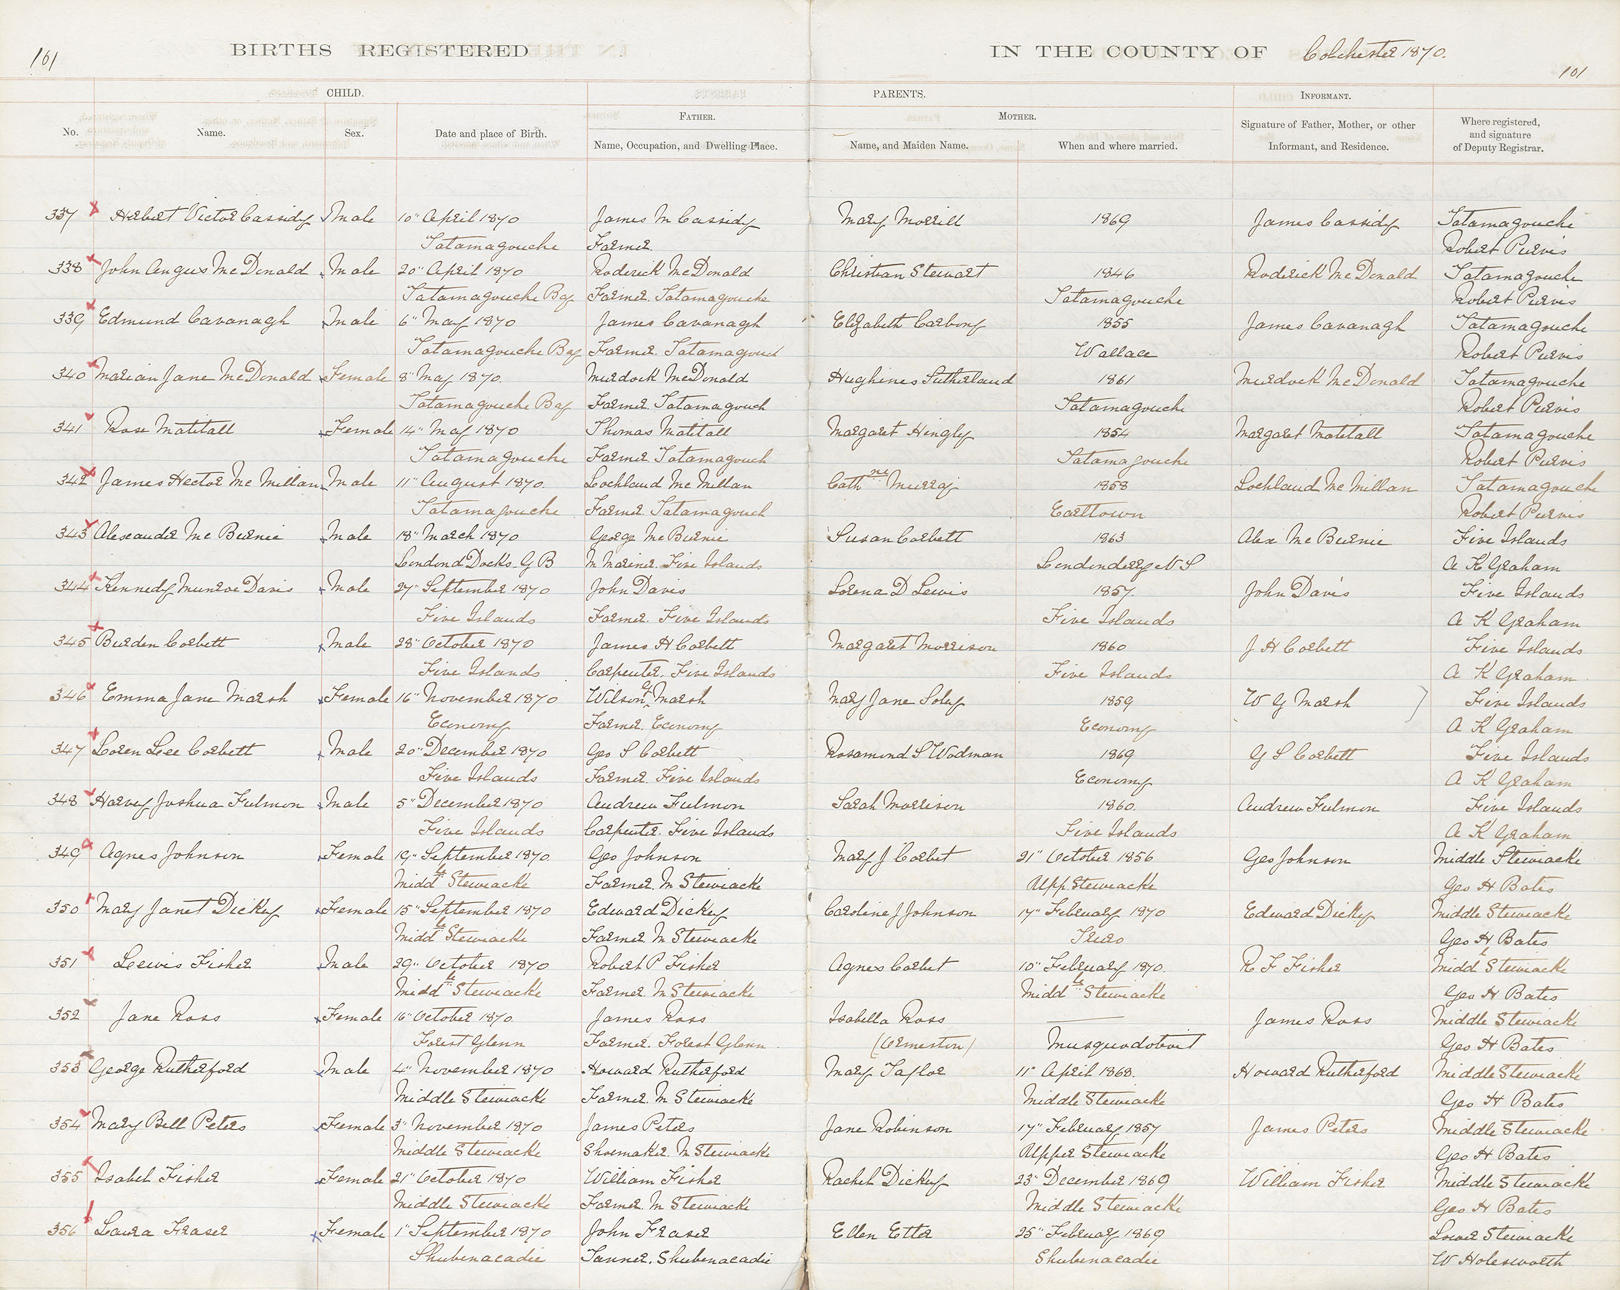 161
BIRTHS REGISTERED
IN THE COUNTY OF Colchester 1870.
161
CHILD.
PARENTS.
INFORMANT.
FATHER.
MOTHER.
No. Name. Sex. Date and place of Birth. Name, Occupation, and Dwelling Place. Name, and Maiden Name. When and where married. Signature of Father, Mother, or other Informant, and Residence. Where registered, and signature of Deputy Registrar.
337 Herbert Victor Cassidy Male 10" April 1870 James M Cassidy Mary Morrill 1869 James Cassidy Tatamagouche
Tatamagouche Farmer. Robert Purvis
338 John Angus McDonald Male 20" April 1870 Roderick McDonald Christian Stewart 1846 Roderick McDonald Tatamagouche
Tatamagouche Bay Farmer. Tatamagouche Tatamagouche Robert Purvis
339 Edmund Cavanagh Male 6" May 1870 James Cavanagh Elizabeth Carbony 1855 James Cavanagh Tatamagouche
Tatamagouche Bay Farmer. Tatamagouch Wallace Robert Purvis
340 Marian Jane McDonald Female 8" May 1870. Murdock McDonald Hughines Sutherland 1861 Murdock McDonald Tatamagouche
Tatamagouche Bay Farmer. Tatamagouch Tatamagouche Robert Purvis
341 Rose Matitall Female 14" May 1870 Thomas Matitall Margaret Hingly 1854 Margaret Matitall Tatamagouche
Tatamagouche Farmer. Tatamagouch Tatamagouche Robert Purvis
342 James Hector McMillan Male 11" August 1870. Lochland McMillan Cathne Murray 1858 Lochland McMillan Tatamagouche
Tatamagouche Farmer. Tatamagouch Earltown Robert Purvis
343 Alexander McBurnie Male 18" March 1870 George McBurnie Susan Corbett 1863 Alex McBurnie Five Islands
London Docks. G B M Mariner. Five Islands Londonderry N S A K Graham
344 Kennedy Munroe Davis Male 27" September 1870 John Davis Lorena D Lewis 1857. John Davis Five Islands
Five Islands Farmer. Five Islands Five Islands A K Graham
345 Burden Corbett Male 28" October 1870 James H Corbett Margaret Morrison 1860 J H Corbett Five Islands
Five Islands Carpenter. Five Islands Five Islands A K Graham
346 Emma Jane Marsh Female 16" November 1870 Wilson G Marsh Mary Jane Soley 1859 W G Marsh Five Islands
Economy Farmer. Economy Economy A K Graham
347 Loren Lee Corbett Male 20" December 1870 Geo S Corbett Rosamond S Wodman 1869 G S Corbett Five Islands
Five Islands Farmer. Five Islands Economy A K Graham
348 Harvey Joshua Fulmon Male 5" December 1870 Andrew Fulmon Sarah Morrison 1860. Andrew Fulmon Five Islands
Five Islands Carpenter. Five Islands Five Islands A K Graham
349 Agnes Johnson Female 19" September 1870 Geo Johnson Mary J Corbet 21" October 1856 Geo Johnson Middle Stewiacke
Middle Stewiacke Farmer. M Stewiacke Upp Stewiacke Geo H Bates
350 Mary Janet Dickey Female 15" September 1870 Edward Dickey Caroline J Johnson 17" February 1870 Edward Dickey Middle Stewiacke
Middle Stewiacke Farmer M Stewiacke Truro Geo H Bates
351 Lewis Fisher Male 29" October 1870 Robert P Fisher Agnes Corbet 10" February 1870. R F Fisher Middle Stewiacke
Middle Stewiacke Farmer. M Stewiacke Middle Stewiacke Geo H Bates
352 Jane Ross Female 16" October 1870. James Ross Isabella Ross James Ross Middle Stewiacke
Forest Glenn Farmer. Forest Glenn (Ormeston) Musquodoboit Geo H Bates
353 George Rutherford Male 4" November 1870 Howard Rutherford Mary Taylor 11" April 1868. Howard Rutherford Middle Stewiacke
Middle Stewiacke Farmer. M Stewiacke Middle Stewiacke Geo H Bates
354 Mary Bell Peters Female 3" November 1870 James Peters Jane Robinson 17" February 1857 James Peters Middle Stewiacke
Middle Stewiacke Shoemaker. M Stewiacke Upper Stewiacke Geo H Bates
355 Isabel Fisher Female 21" October 1870 William Fisher Rachel Dickey 23" December 1869 William Fisher Middle Stewiacke
Middle Stewiacke Farmer. M Stewiacke Middle Stewiacke Geo H Bates
356 Laura Fraser Female 1" September 1870 John Fraser Ellen Etter 25" February 1869 Lower Stewiacke
Shubenacadie Tanner. Shubenacadie Shubenacadie W Holesworth